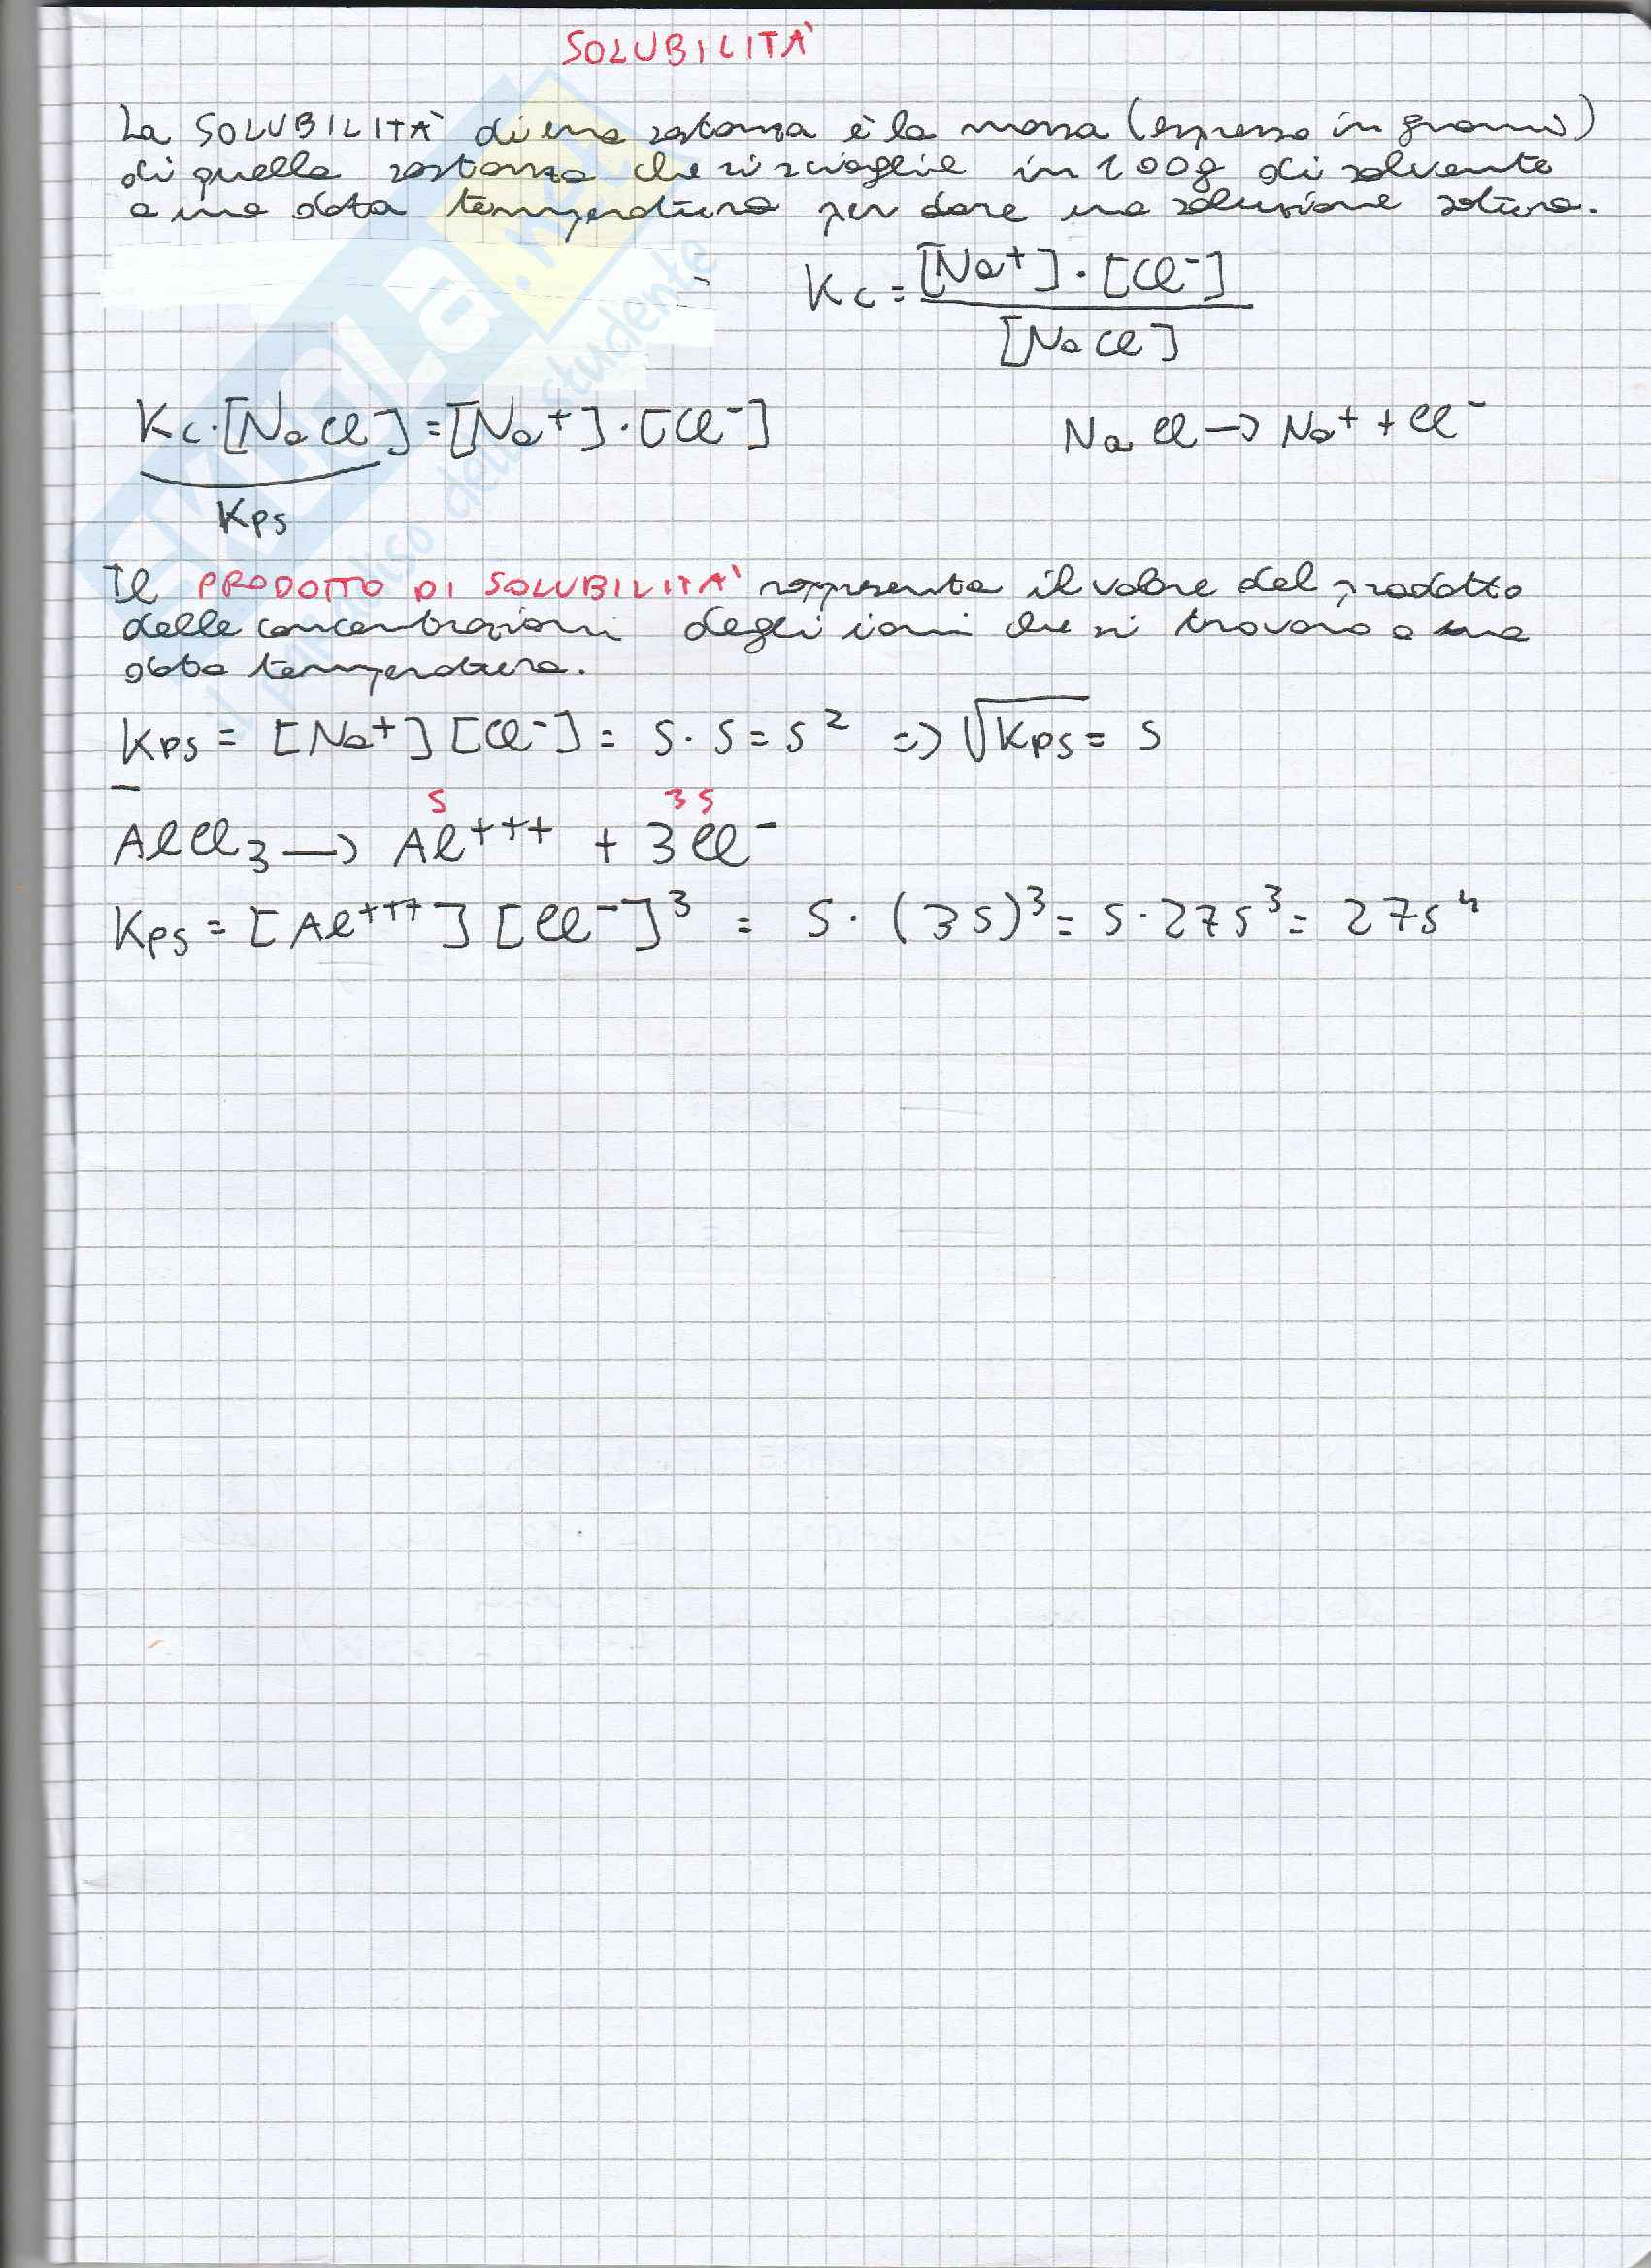 SOLUBILITÀ
La SOLUBILITÀ di una sostanza è la massa (espressa in grammi)
di quella sostanza che si scioglie in 100g di solvente
a una data temperatura per dare una soluzione satura.
Kc = [Na+]·[Cl-] / [NaCl]
Kc·[NaCl] = [Na+]·[Cl-]
NaCl → Na+ + Cl-
Kps
Il PRODOTTO DI SOLUBILITÀ rappresenta il valore del prodotto
delle concentrazioni degli ioni che si trovano a una
data temperatura.
Kps = [Na+][Cl-] = s·s = s² => √Kps = s
s 3s
AlCl₃ → Al+++ + 3Cl-
Kps = [Al+++][Cl-]³ = s·(3s)³ = s·27s³ = 27s⁴
SKUOLA.net
il paradiso dello studente